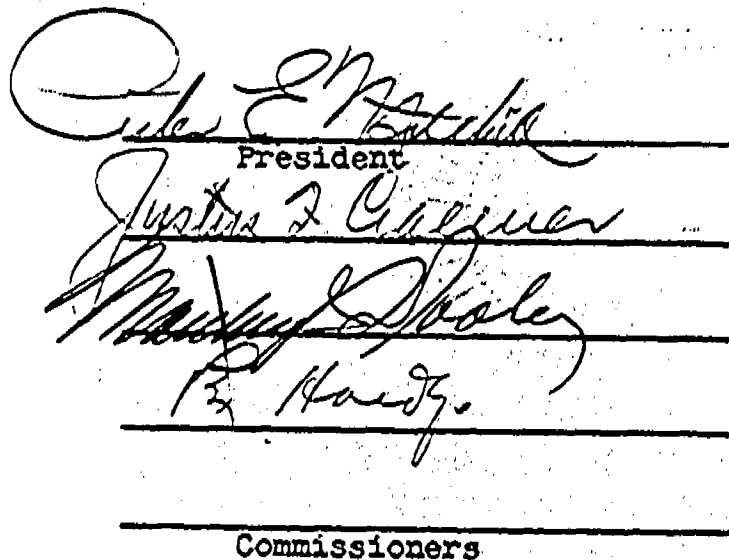 Peter E Mitchell
President
Justus F Craemer
Dooley
Rex Hardy
Commissioners